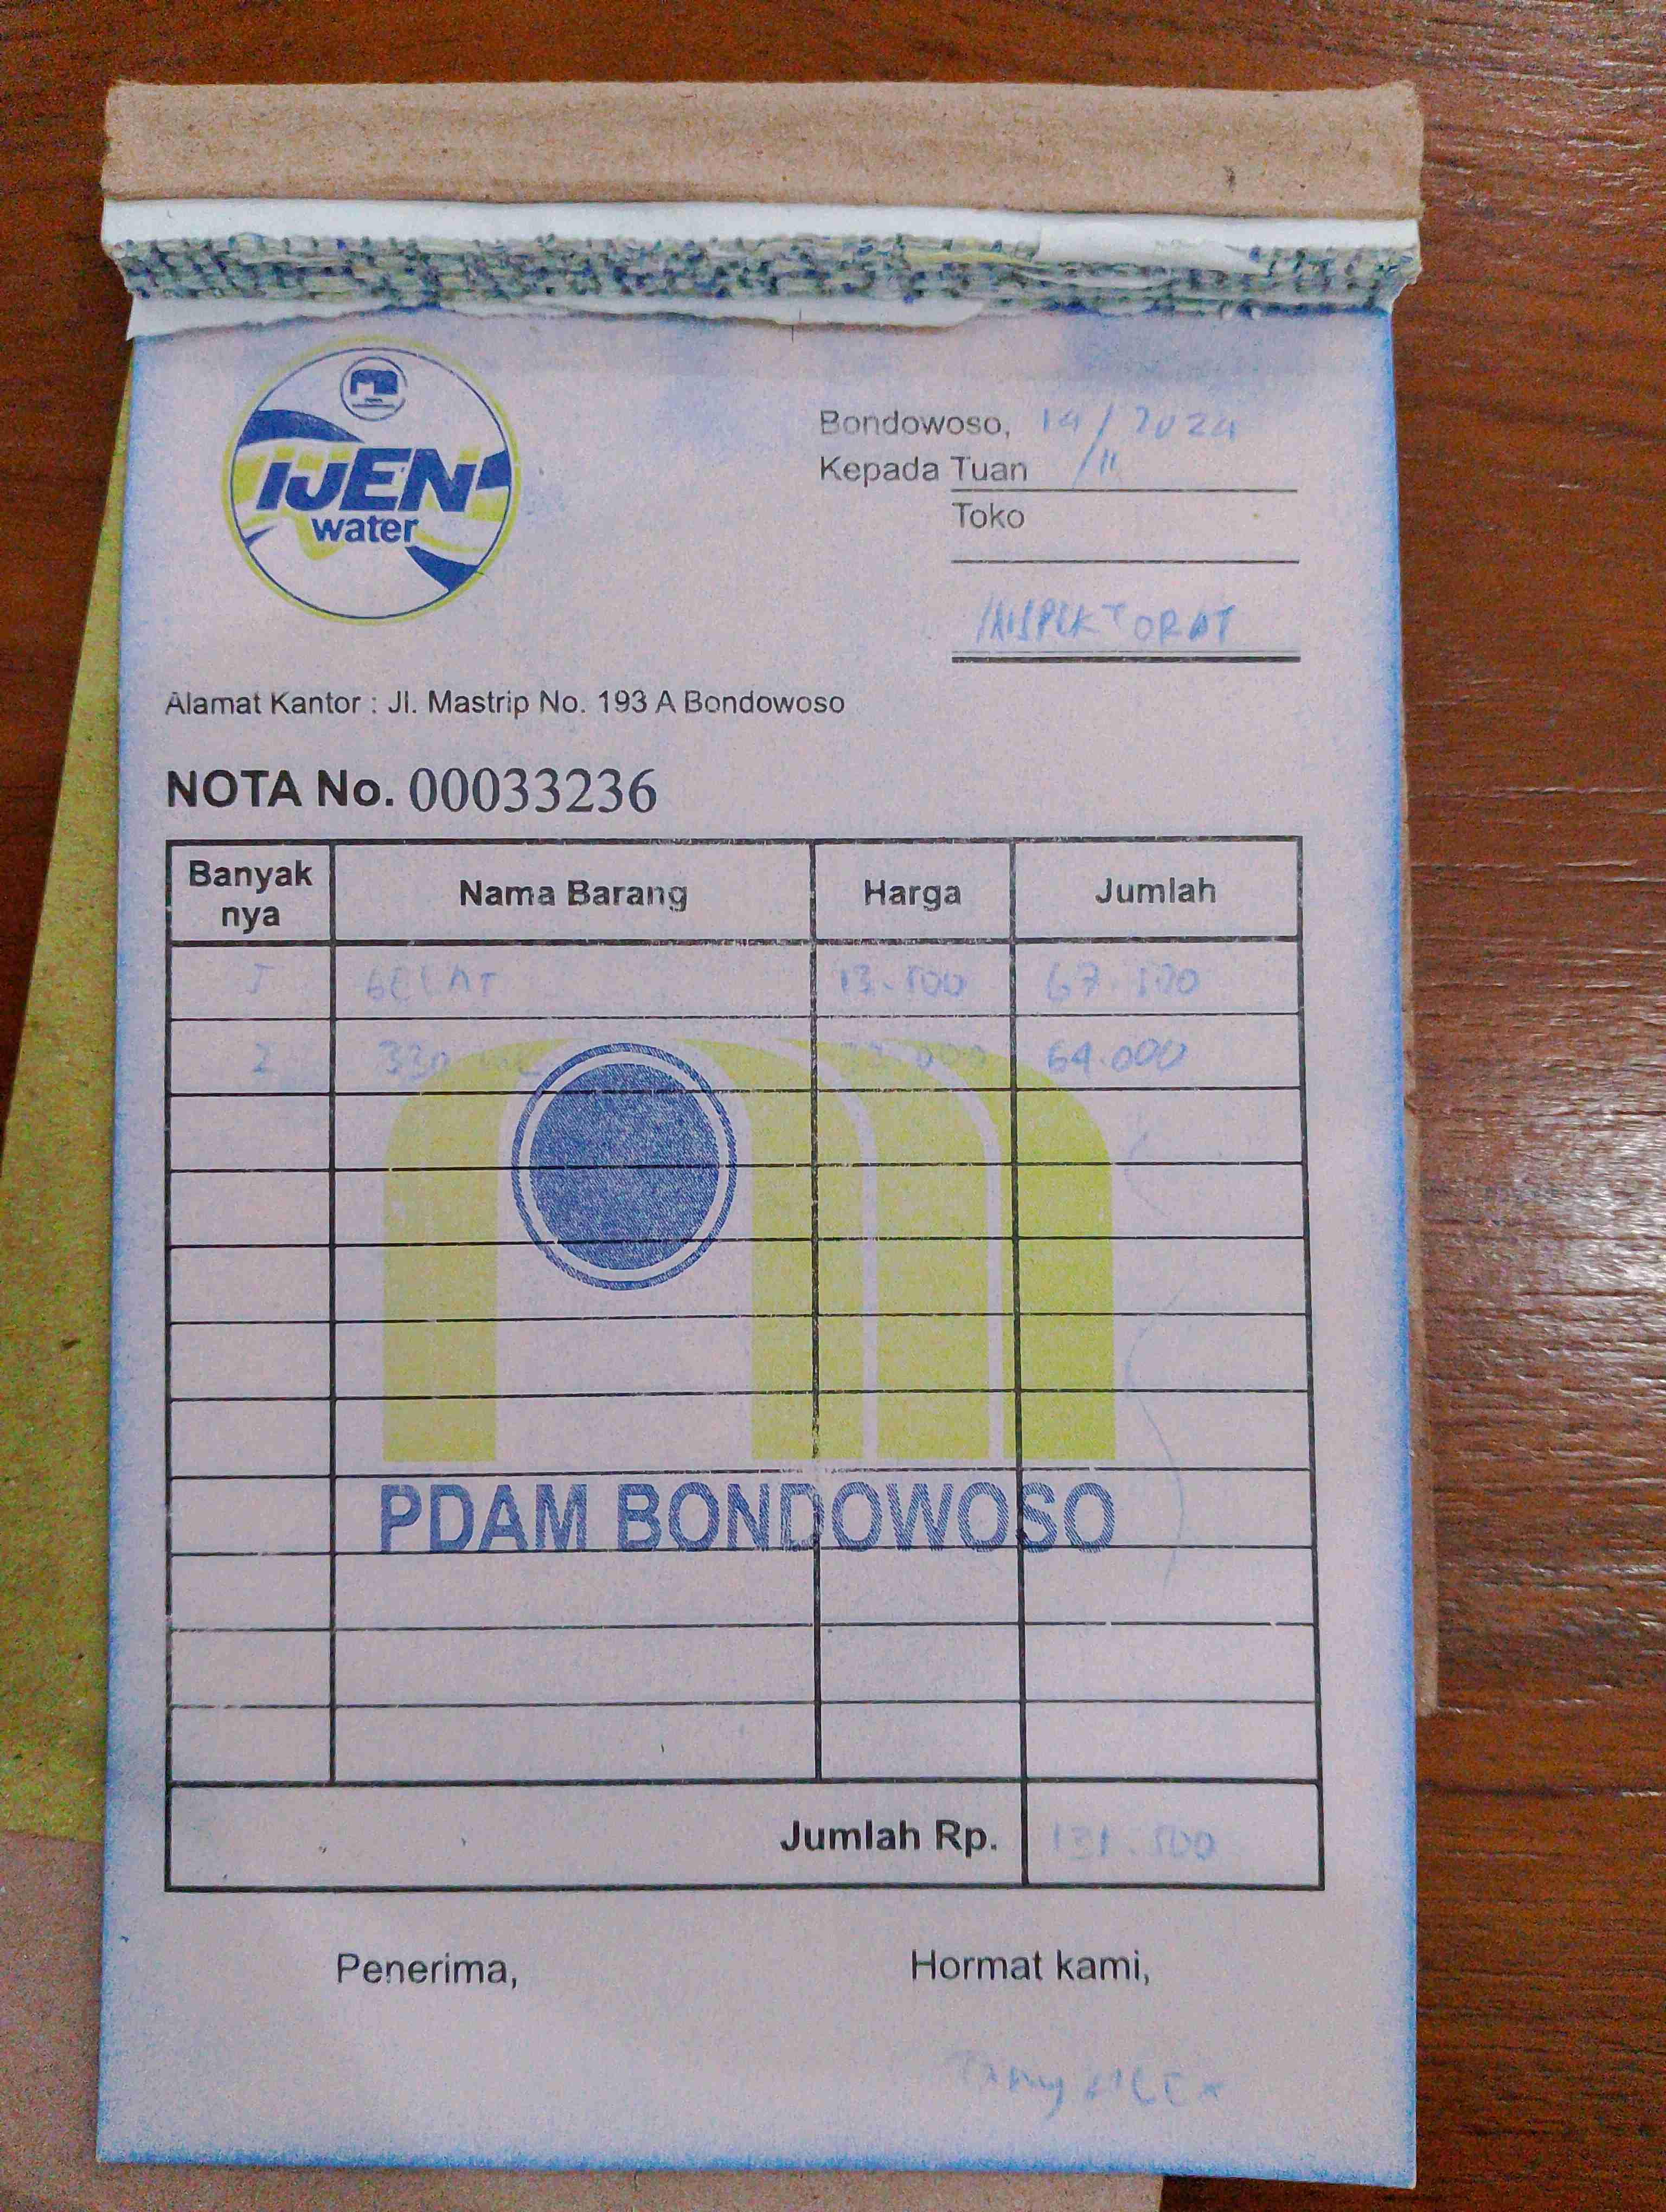 IJEN
water
Bondowoso, 14/11 2024
Kepada Tuan
Toko
INSPEKTORAT
Alamat Kantor : Jl. Mastrip No. 193 A Bondowoso
NOTA No. 00033236
Banyak nya Nama Barang Harga Jumlah
5 GELAS 13.500 67.500
2 330 ML 32.000 64.000
PDAM BONDOWOSO
Jumlah Rp. 131.500
Penerima, Hormat kami,